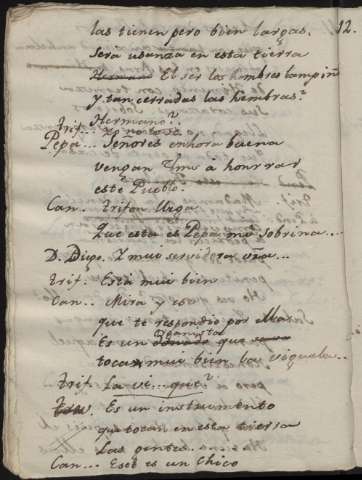 12.
las tienen pero bien largas.
sera usanza en esta tierra
El ser los hombres lampin
y tan cerradas las hembras?
Hermano?
Trif...
Pepa... Señores enhora buena
vengan Vms à honrrar
este Pueblo.
Can... Trifon llega
Que esta es Pepa mi sobrina...
D. Diego. Y mui servidora vña...
Trif. Està mui bien
Can... Mira y eso
que te respondio por
Es un Organista que
toca mui bien la viguela...
Trif. La vi...que?
Es un instrumento
que tocan en esta tierra
Las gentes...
Can... Ese es un chico